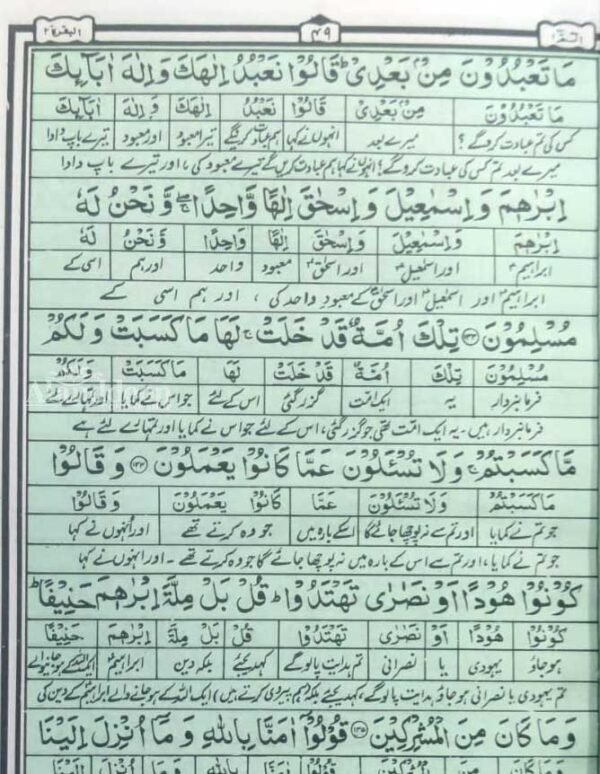 البقرة ٢ ٤٩ الٓمّٓ ١
مَا تَعْبُدُوْنَ مِنْۢ بَعْدِىْ ؕ قَالُوْا نَعْبُدُ اِلٰهَكَ وَاِلٰهَ اٰبَآئِكَ
مَا تَعْبُدُوْنَ مِنْۢ بَعْدِىْ قَالُوْا نَعْبُدُ اِلٰهَكَ وَ اِلٰهَ اٰبَآئِكَ
کس کی تم عبادت کرو گے؟ میرے بعد انہوں نے کہا ہم عبادت کرینگے تیرا معبود اور معبود تیرے باپ دادا
میرے بعد تم کس کی عبادت کرو گے؟ انہوں نے کہا ہم عبادت کریں گے تیرے معبود کی، اور تیرے باپ دادا
اِبْرٰهٖمَ وَ اِسْمٰعِيْلَ وَ اِسْحٰقَ اِلٰهًا وَّاحِدًا ۖۚ وَّ نَحْنُ لَهٗ
اِبْرٰهٖمَ وَ اِسْمٰعِيْلَ وَ اِسْحٰقَ اِلٰهًا وَّاحِدًا وَّ نَحْنُ لَهٗ
ابراہیمؑ اور اسمٰعیلؑ اور اسحٰقؑ معبود واحد اور ہم اسی کے
ابراہیمؑ اور اسمٰعیلؑ اور اسحٰقؑ کے معبودِ واحد کی، اور ہم اسی کے
مُسْلِمُوْنَ ﴿۱۳۳﴾ تِلْكَ اُمَّةٌ قَدْ خَلَتْ ۚ لَهَا مَا كَسَبَتْ وَ لَكُمْ
مُسْلِمُوْنَ تِلْكَ اُمَّةٌ قَدْ خَلَتْ لَهَا مَا كَسَبَتْ وَلَكُمْ
فرمانبردار یہ ایک امّت گزر گئی اس کے لئے جو اس نے کمایا اور تمہارے لئے
فرمانبردار ہیں۔ یہ ایک امّت تھی جو گزر گئی، اس کے لئے جو اس نے کمایا اور تمہارے لئے ہے
مَّا كَسَبْتُمْ ۚ وَ لَا تُسْـَٔلُوْنَ عَمَّا كَانُوْا يَعْمَلُوْنَ ﴿۱۳۴﴾ وَ قَالُوْا
مَا كَسَبْتُمْ وَ لَا تُسْـَٔلُوْنَ عَمَّا كَانُوْا يَعْمَلُوْنَ وَ قَالُوْا
جو تم نے کمایا اور تم سے نہ پوچھا جائے گا اسکے بارہ میں جو وہ کرتے تھے اور انہوں نے کہا
جو تم نے کمایا، اور تم سے اس کے بارہ میں نہ پوچھا جائے گا جو وہ کرتے تھے۔ اور انہوں نے کہا
كُوْنُوْا هُوْدًا اَوْ نَصٰرٰى تَهْتَدُوْا ؕ قُلْ بَلْ مِلَّةَ اِبْرٰهٖمَ حَنِيْفًا ؕ
كُوْنُوْا هُوْدًا اَوْ نَصٰرٰى تَهْتَدُوْا قُلْ بَلْ مِلَّةَ اِبْرٰهٖمَ حَنِيْفًا
ہو جاؤ یہودی یا نصرانی تم ہدایت پا لو گے کہہ دیجئے بلکہ دین ابراہیمؑ
تم یہودی یا نصرانی ہو جاؤ ہدایت پا لو گے، کہہ دیجئے بلکہ (ہم پیروی کرتے ہیں) ایک اللہ کے ہو جانے والے ابراہیمؑ کے دین کی
وَ مَا كَانَ مِنَ الْمُشْرِكِيْنَ ﴿۱۳۵﴾ قُوْلُوْۤا اٰمَنَّا بِاللّٰهِ وَ مَاۤ اُنْزِلَ اِلَيْنَا
وَ مَا كَانَ مِنَ الْمُشْرِكِيْنَ قُوْلُوْۤا اٰمَنَّا بِاللّٰهِ وَ مَاۤ اُنْزِلَ اِلَيْنَا